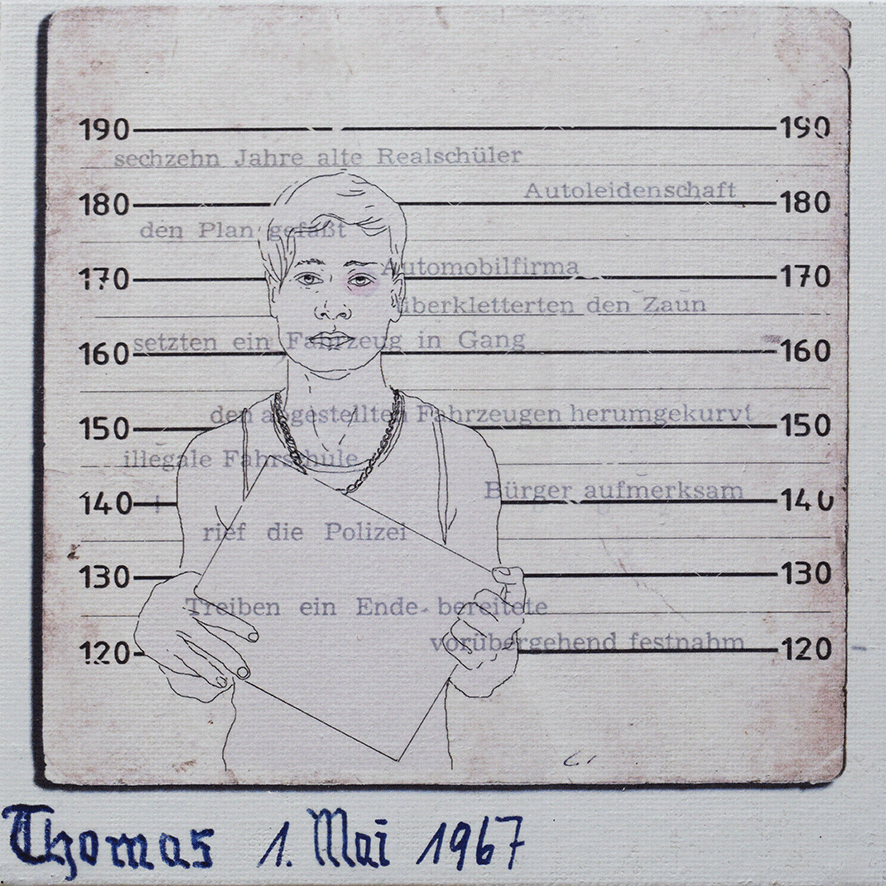 190 190
sechzehn Jahre alte Realschüler
Autoleidenschaft
180 180
den Plan gefaßt
Automobilfirma
170 170
überkletterten den Zaun
setzten ein Fahrzeug in Gang
160 160
den abgestellten Fahrzeugen herumgekurvt
150 150
illegale Fahrschule
Bürger aufmerksam
140 140
rief die Polizei
130 130
Treiben ein Ende bereitete
vorübergehend festnahm
120 120
Thomas 1. Mai 1967